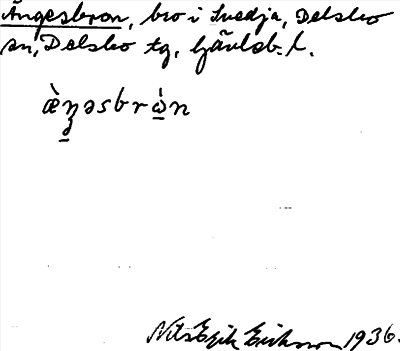 Ängesbron, bro i Svedja, Delsbo
sn, Delsbo tg, Gävleb. l.
æ̀ŋəsbrὼn
Nils Erik Eriksson 1936.